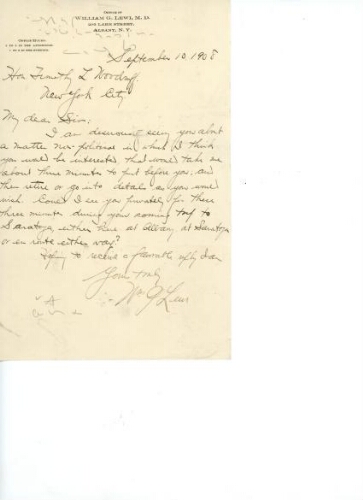 OFFICE OF
WILLIAM G. LEWI, M. D.
ALBANY, N. Y.
September 10, 1908
Hon Timothy L Woodruff
New York City
My dear Sir:
I am desirous of seeing you about
a matter non-political in which I think
you would be interested that would take me
about three minutes to put before you, and
then retire or go into details as you would
wish. Could I see you privately for these
three minutes during your coming trip to
Saratoga, either here at Albany, at Saratoga
or en route either way?
Hoping to receive a favorable reply I am
Yours truly
Wm G Lewi